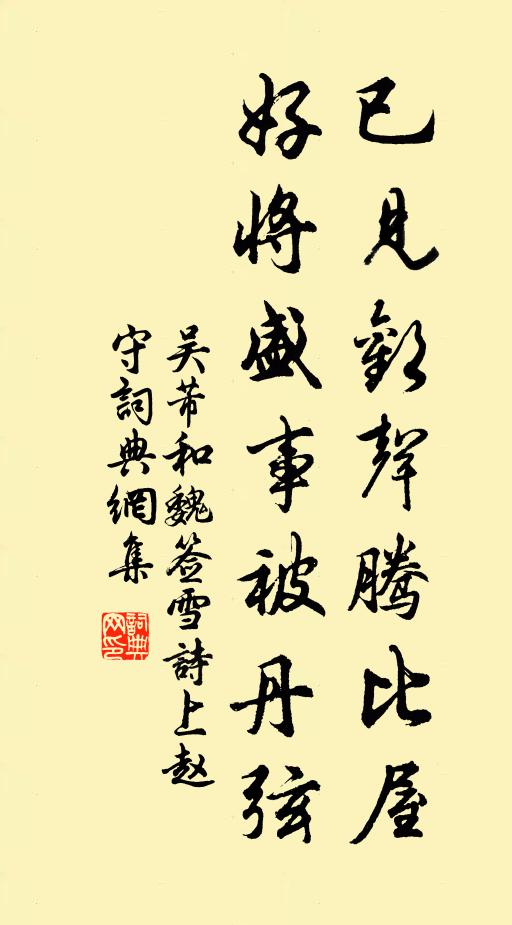 已見歡聲騰比屋
好將盛事被丹弦
吴芾和魏签雪詩上赵
守詞典網集
詞典网印